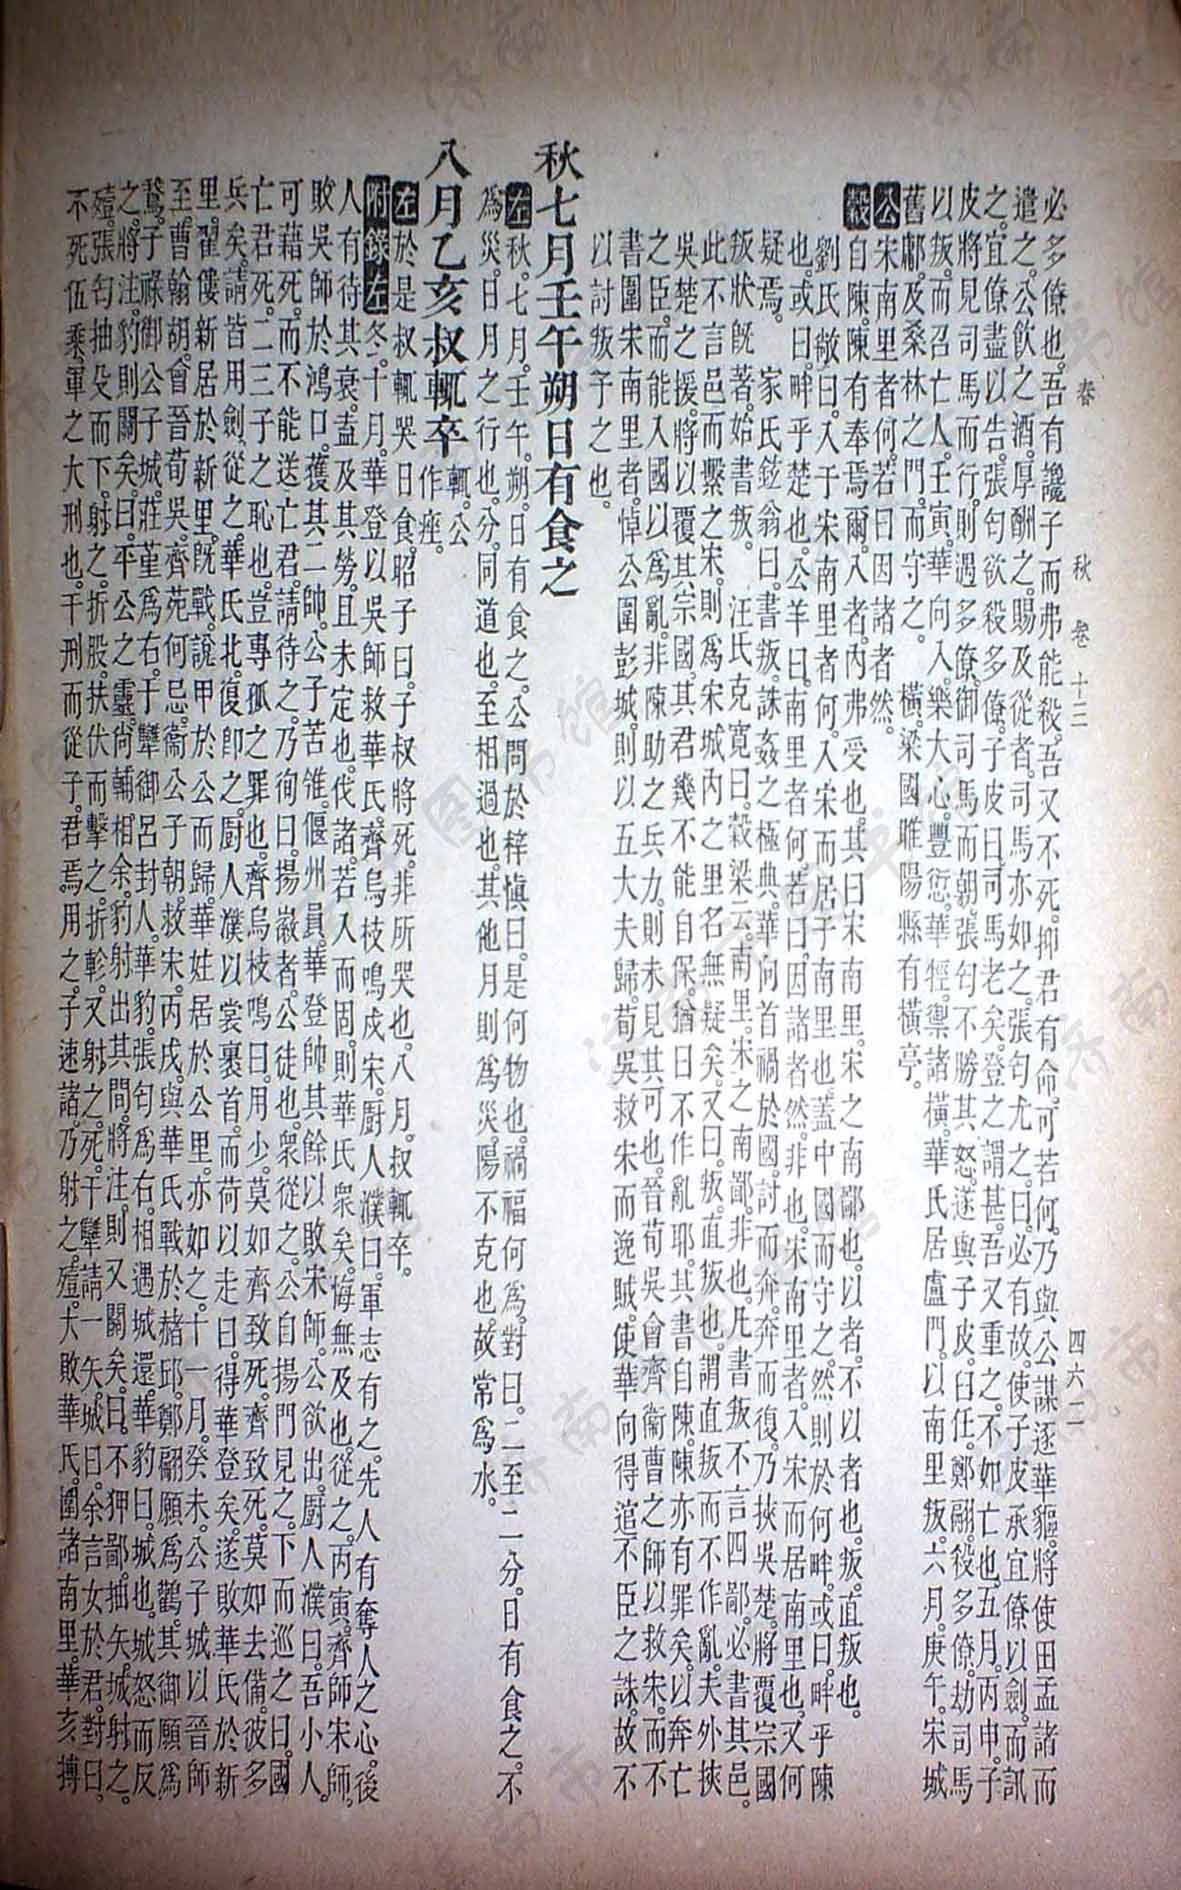 春　秋　卷十三　四六二
必多僚也。吾有讒子而弗能殺。吾又不死。抑君有命。可若何。乃與公謀逐華貙。將使田孟諸而
遣之。公飲之酒。厚酬之。賜及從者。司馬亦如之。張匄尤之。曰。必有故。使子皮承宜僚以劍。而訊
之。宜僚盡以告。張匄欲殺多僚。子皮曰。司馬老矣。登之謂甚。吾又重之。不如亡也。五月。丙申。子
皮將見司馬而行。則遇多僚。御司馬而朝。張匄不勝其怒。遂與子皮。臼任。鄭翩。殺多僚。劫司馬
以叛。而召亡人。壬寅。華向入。樂大心。豐愆。華牼。禦諸橫。華氏居盧門。以南里叛。六月。庚午。宋城
舊鄘。及桑林之門。而守之。　橫。梁國睢陽縣有橫亭。
公宋南里者何。若曰因諸者然。
穀自陳。陳有奉焉爾。入者。內弗受也。其曰宋南里。宋之南鄙也。以者。不以者也。叛。直叛也。
劉氏敞曰。入于宋南里者何。入宋而居于南里也。蓋中國而守之。然則於何畔。或曰。畔乎陳
也。或曰。畔乎楚也。公羊曰。南里者何。若曰。因諸者然。非也。宋南里者。入宋而居南里也。又何
疑焉。　家氏鉉翁曰。書叛。誅姦之極典。華向首禍於國。討而奔。奔而復。乃挾吳楚。將覆宗國
叛狀旣著。始書叛。　汪氏克寬曰。穀梁云。南里。宋之南鄙。非也。凡書叛。不言四鄙。必書其邑。
此不言邑。而繫之宋。則爲宋城內之里名無疑矣。又曰。叛。直叛也。謂直叛而不作亂。夫外挾
吳楚之援。將以覆其宗國。其君幾不能自保。猶曰不作亂耶。其書自陳。陳亦有罪矣。以奔亡
之臣。而能入國以爲亂。非陳助之兵力。則未見其可也。晉荀吳會齊衞曹之師以救宋。而不
書圍宋南里者。悼公圍彭城。則以五大夫歸。荀吳救宋而逸賊。使華向得逭不臣之誅。故不
以討叛予之也。
秋七月壬午朔日有食之
左秋。七月。壬午。朔。日有食之。公問於梓愼曰。是何物也。禍福何爲。對曰。二至二分。日有食之。不
爲災。日月之行也。分。同道也。至。相過也。其他月則爲災。陽不克也。故常爲水。
八月乙亥叔輒卒輒。公作痤。
左於是叔輒哭日食。昭子曰。子叔將死。非所哭也。八月。叔輒卒。
附錄左冬。十月。華登以吳師救華氏。齊烏枝鳴戍宋。廚人濮曰。軍志有之。先人有奪人之心。後
人有待其衰。盍及其勞。且未定也。伐諸。若入而固。則華氏衆矣。悔無及也。從之。丙寅。齊師宋師。
敗吳師於鴻口。獲其二帥。公子苦雂。偃州員。華登帥其餘以敗宋師。公欲出。廚人濮曰。吾小人。
可藉死。而不能送亡君。請待之。乃徇曰。揚徽者。公徒也。衆從之。公自揚門見之。下而巡之曰。國
亡君死。二三子之恥也。豈專孤之罪也。齊烏枝鳴曰。用少。莫如齊致死。齊致死。莫如去備。彼多
兵矣。請皆用劍。從之。華氏北。復卽之。廚人濮以裳裹首。而荷以走曰。得華登矣。遂敗華氏於新
里。翟僂新居於新里。旣戰。說甲於公而歸。華姓居於公里。亦如之。十一月。癸未。公子城以晉師
至。曹翰胡。會晉荀吳。齊苑何忌。衞公子朝。救宋。丙戌。與華氏戰於赭邱。鄭翩願爲鸛。其御願爲
鵞。子祿御公子城。莊堇爲右。干犨御呂封人。華豹。張匄爲右。相遇。城還。華豹曰。城也。城怒而反
之。將注。豹則關矣。曰。平公之靈。尙輔相余。豹射出其間。將注。則又關矣。曰。不狎鄙。抽矢。城射之。
殪。張匄抽殳而下。射之。折股。扶伏而擊之。折軫。又射之。死。干犨請一矢。城曰。余言女於君。對曰。
不死伍乘。軍之大刑也。干刑而從子。君焉用之。子速諸。乃射之。殪。大敗華氏。圍諸南里。華亥搏